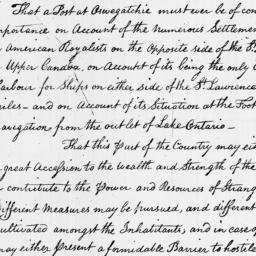 That a Post at Oswegatchie must ever be of con
mportance on Account of the numerous Settlemen
American Royalists on the Opposite side of the St.
Upper Canada, on Account of its being the only
Harbour for Ships on either side of the St. Lawrence
iles – and on Account of its Situation at the Foot
avigation from the outlet of Lake Ontario –
That this Part of the Country may ei
great Accession to the wealth and Strength of the
contribute to the Power and Resources of Strang
different Measures may be pursued, and different
ultivated amongst the Inhabitants, and in case of
may either Present a formidable Barrier to hostile